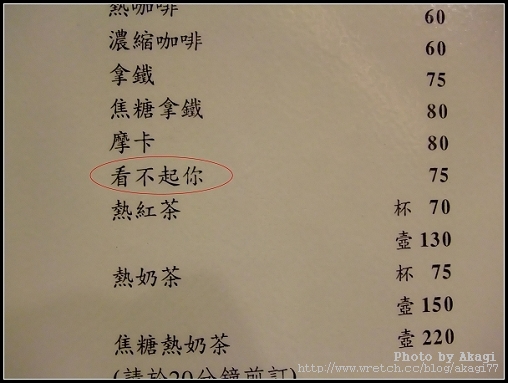 熱咖啡 60
濃縮咖啡 60
拿鐵 75
焦糖拿鐵 80
摩卡 80
看不起你 75
熱紅茶 杯 70
壺 130
熱奶茶 杯 75
壺 150
焦糖熱奶茶 壺 220
(請於20分鐘前訂)
Photo by Akagi
http://www.wretch.cc/blog/akagi77